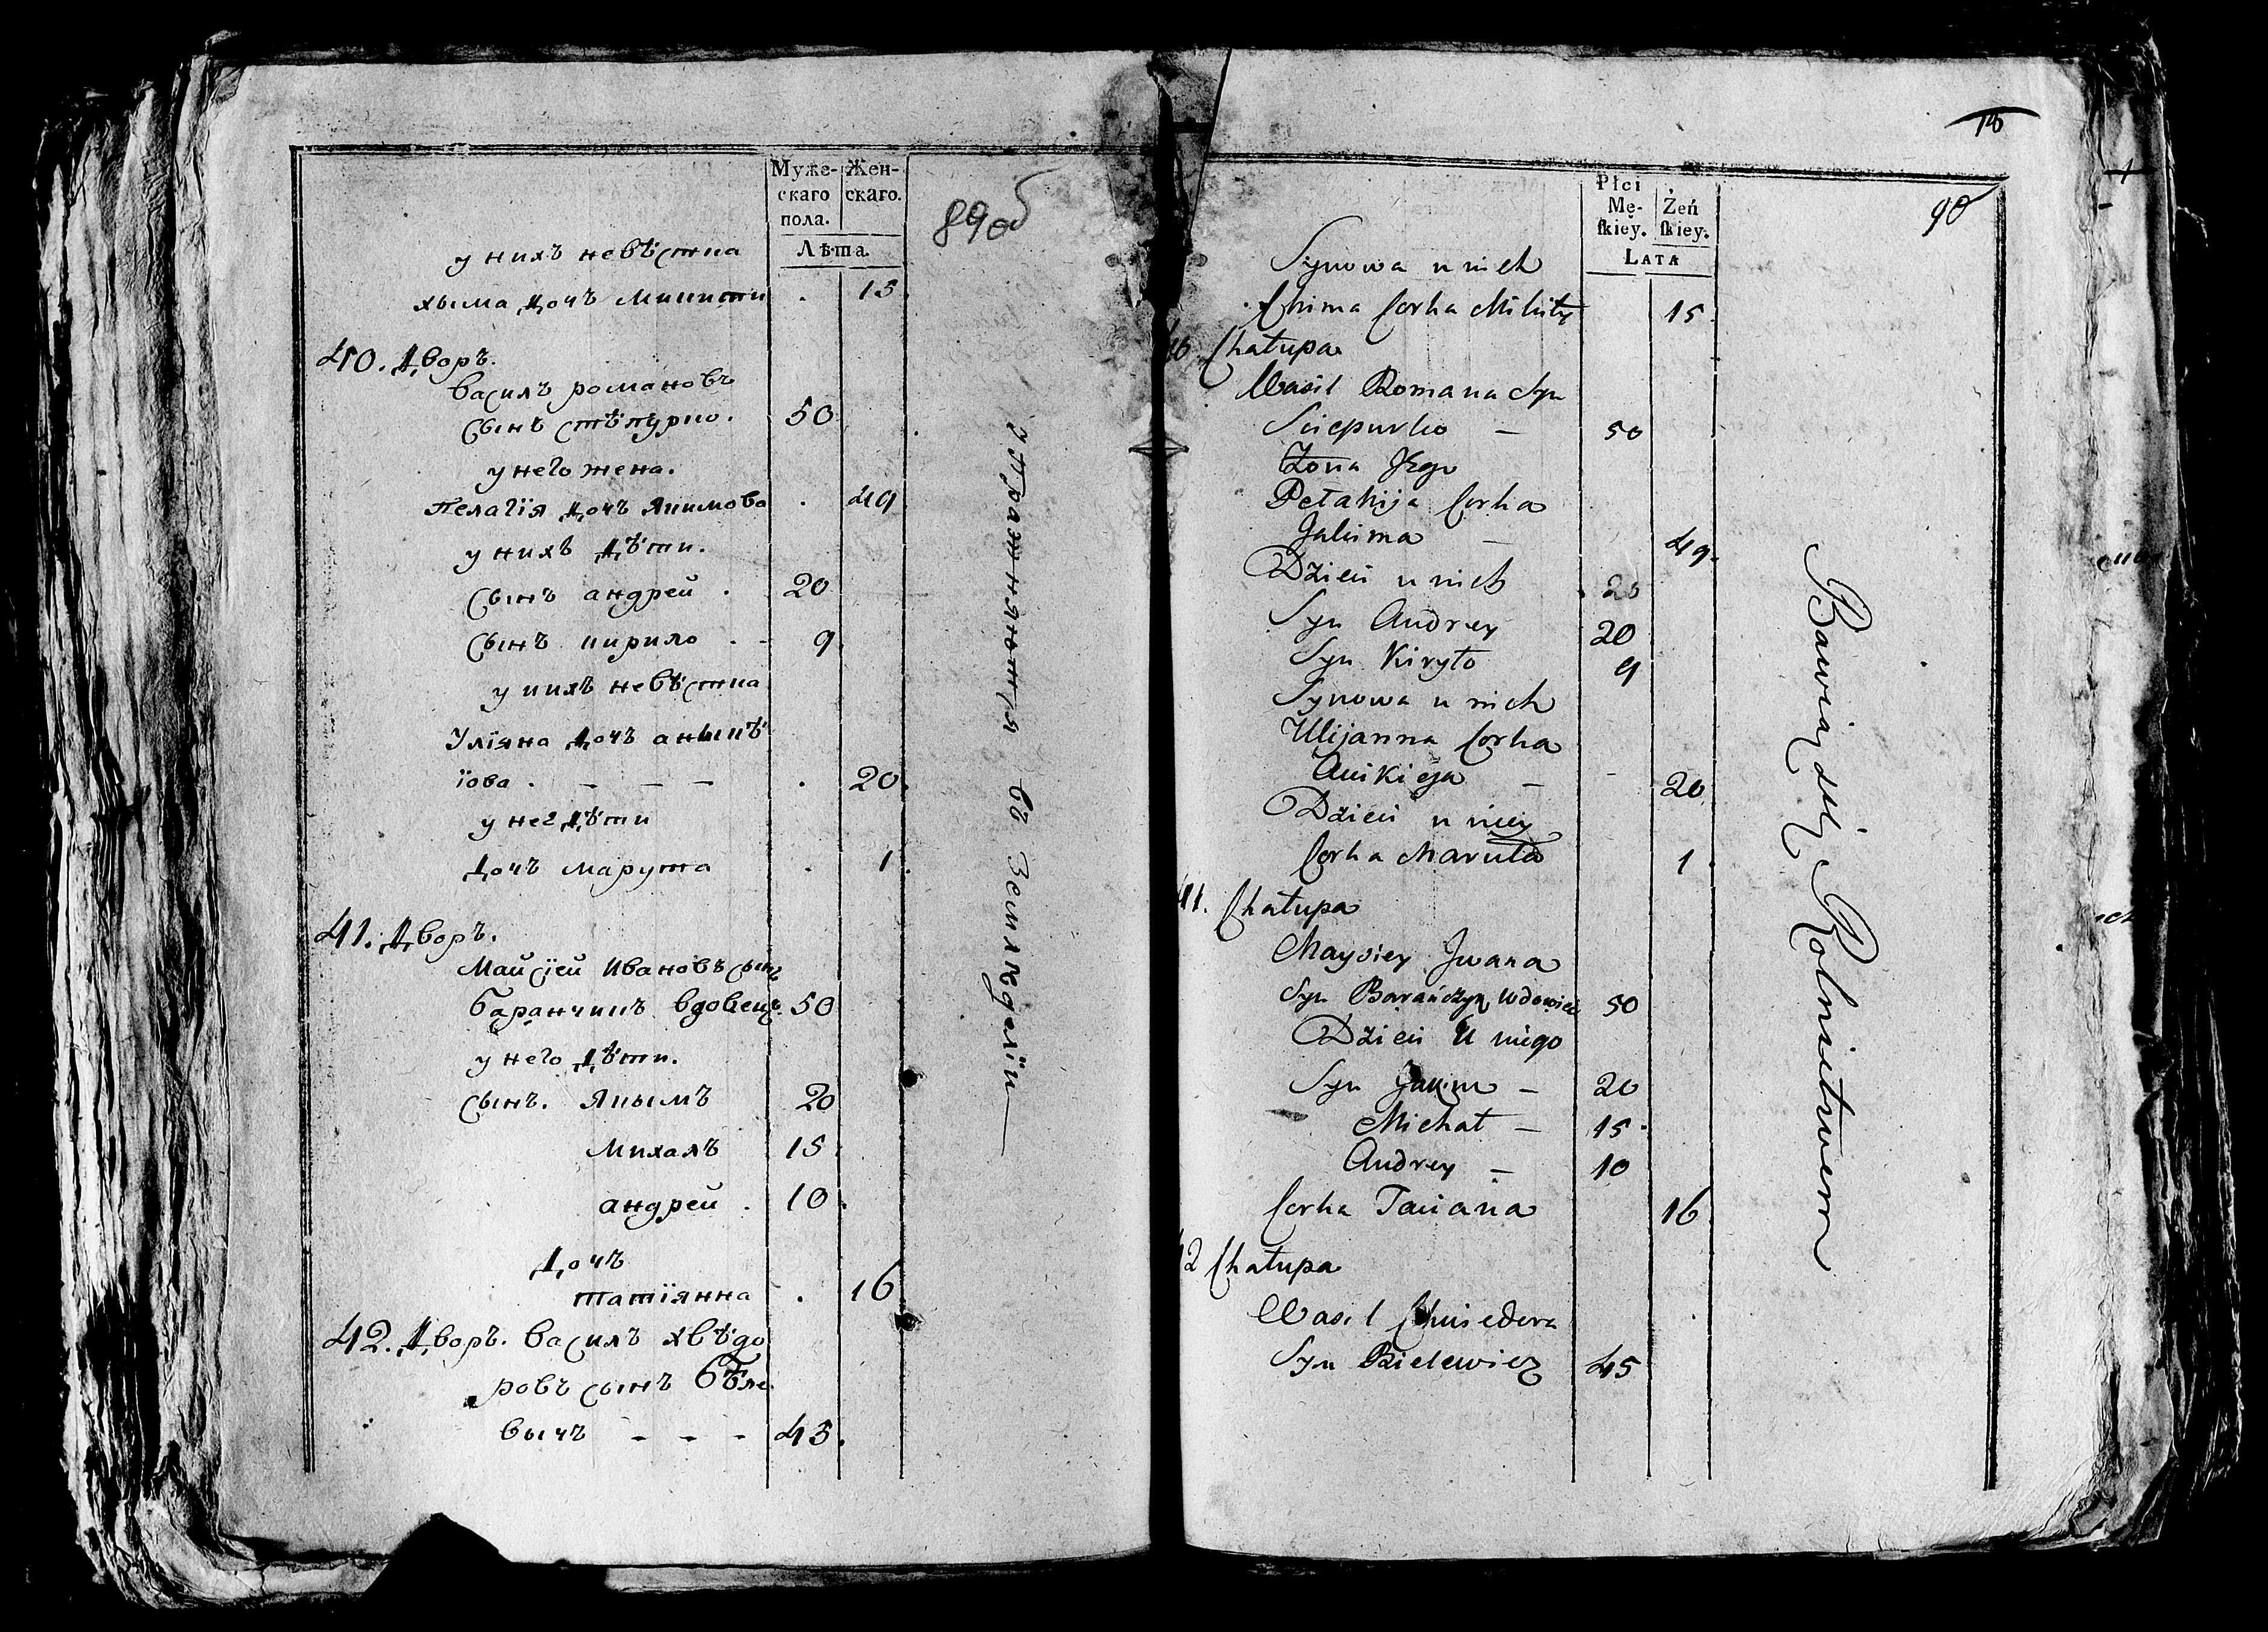 Муже- Жен-
скаго скаго.
пола.
Лѣта.
89об
у нихъ невѣстка
хыма дочъ Микиты . 15
40. Дворъ.
Василъ романовъ
сынъ стѣпурко. 50
у него жена.
Пелагія дочъ Якимова . 49
у нихъ дѣти.
сынъ андрей . 20
сынъ кирило . - 9
у нихъ невѣстка
Уліяна дочъ аникѣ
іова . - - - . 20.
у нег дѣти
дочъ марута . 1.
41. Дворъ.
Майсіей Ивановъ сынъ
баранчикъ вдовецъ. 50
у него дѣти.
сынъ. Якымъ 20
Михалъ 15.
андрей . 10.
дочъ
татіянна . 16
42. Дворъ. Василъ хвѣдо
ровъ сынъ бѣле
вычъ - - - 45.
упражняются въ Земледеліи
90
Płci
Mę- Żeń
skiey. skiey.
LATA
Synowa u nich
Chima Corka Mikity 15.
Chałupa
Wasil Romana Syn
Sciepurko — 50
Żona Jego
Pełahija Corka
Jakima — 49.
Dzieci u nich 20
Syn Andrey 20
Syn Kiryło 9
Synowa u nich
Ulijanna Corka
Anikieja — 20.
Dzieci u niey
Corka Maruta 1.
41. Chałupa
Maysiey Jwana
Syn Barańczyk Wdowiec 50
Dzieci U niego
Syn Jakim — 20
Michał — 15.
Andrey — 10
Corka Taciana 16.
42 Chałupa
Wasil Chwiedora
Syn Bielewicz 45
Bawią się Rolnictwem